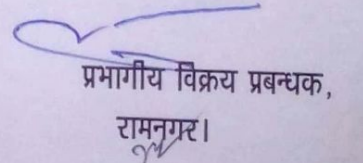 प्रभागीय विक्रय प्रबन्धक,
रामनगर।